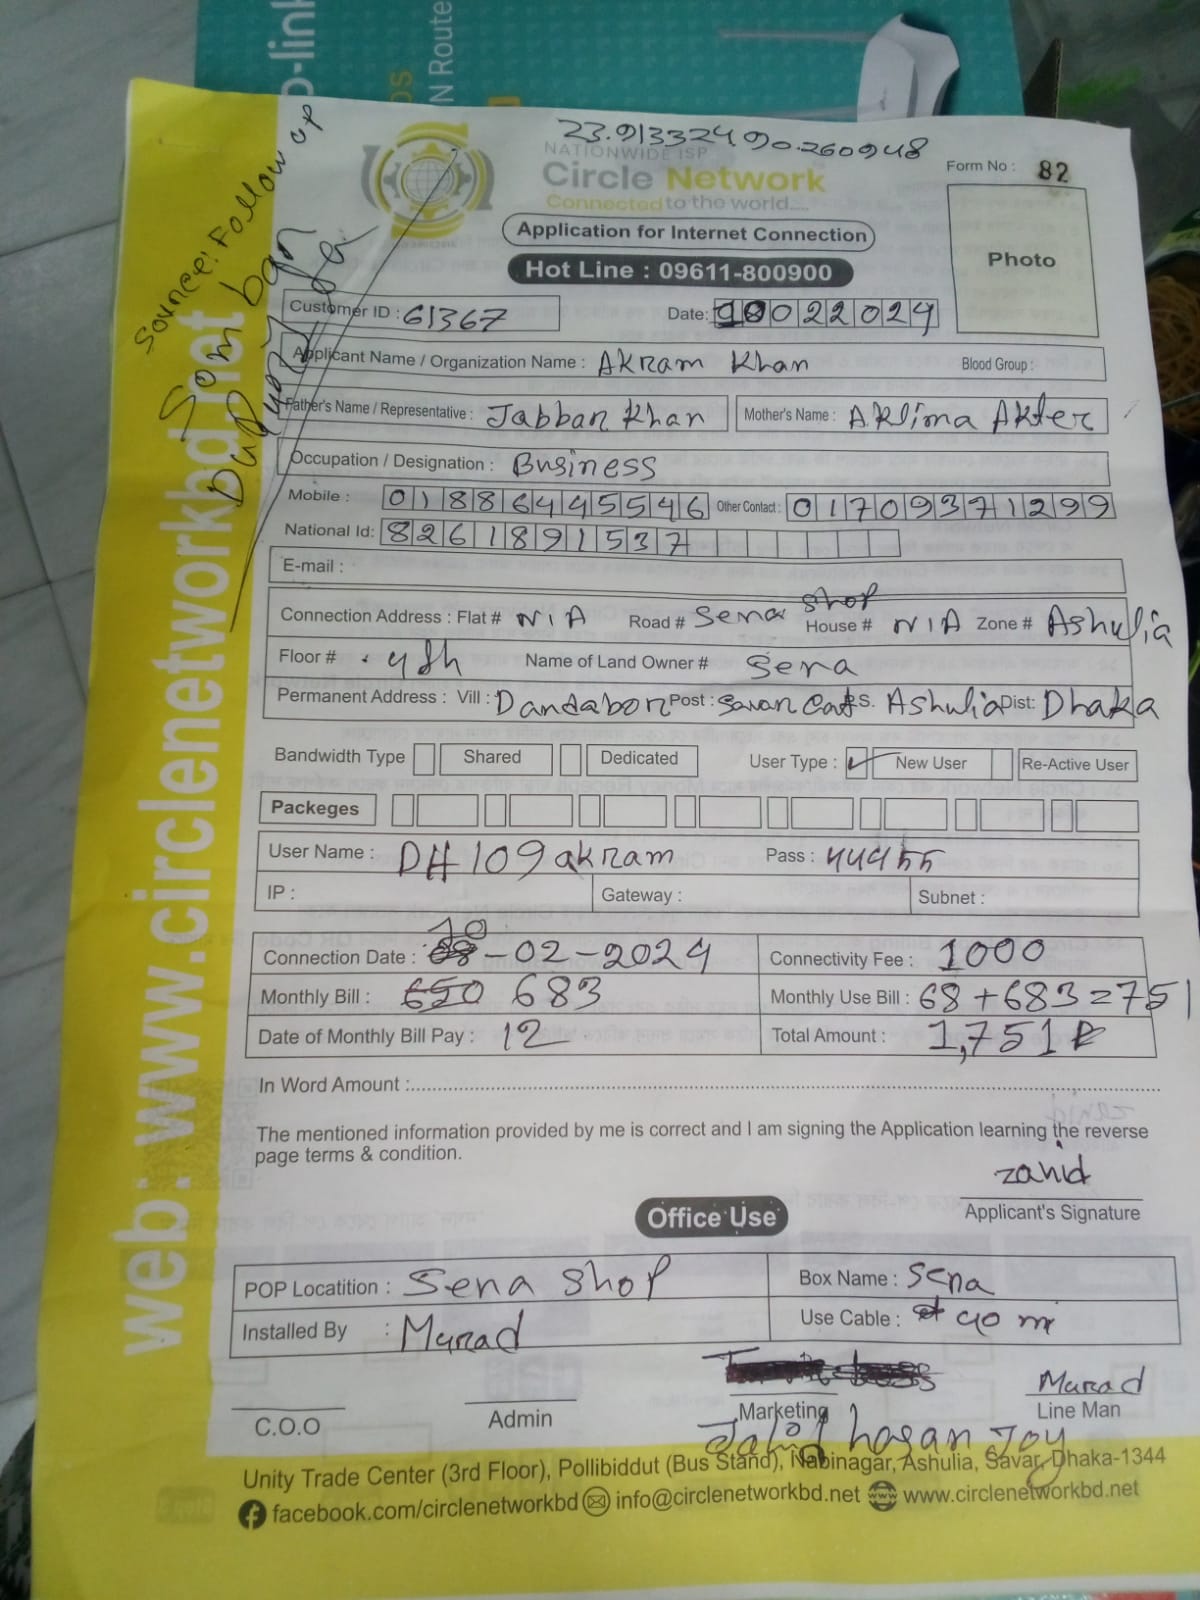 p-link
N Route
23.913324, 90.260948
NATIONWIDE ISP
Circle Network
Connected to the world....
Form No : 82
Photo
Application for Internet Connection
Hot Line : 09611-800900
Source: Follow up
Som ban
web: www.circlenetworkbd.net
Customer ID : 61367
Date: 022024
Applicant Name / Organization Name : AKRam Khan Blood Group :
Father's Name / Representative : Jabbar Khan Mother's Name : Aklima Akter
Occupation / Designation : Business
Mobile : 01886445546 Other Contact : 01709371299
National Id: 8261891537
E-mail :
shop
Connection Address : Flat # N/A Road # Sena House # N/A Zone # Ashulia
Floor # 4th Name of Land Owner # Sena
Permanent Address : Vill : Dandabor Post : Savar Cat P.S. Ashulia Dist: Dhaka
Bandwidth Type Shared Dedicated User Type : ✓ New User Re-Active User
Packeges
User Name : DH109akram Pass : 44455
IP : Gateway : Subnet :
Connection Date : 10 -02-2024 Connectivity Fee : 1000
Monthly Bill : 650 683 Monthly Use Bill : 68+683=751
Date of Monthly Bill Pay : 12 Total Amount : 1,751
In Word Amount :
The mentioned information provided by me is correct and I am signing the Application learning the reverse
page terms & condition.
zahid
Applicant's Signature
Office Use
POP Locatition : Sena Shop Box Name : Sena
Installed By : Murad Use Cable : 90 m
Murad
C.O.O Admin Marketing Line Man
hasan Joy
Unity Trade Center (3rd Floor), Pollibiddut (Bus Stand), Nabinagar, Ashulia, Savar, Dhaka-1344
facebook.com/circlenetworkbd info@circlenetworkbd.net www.circlenetworkbd.net